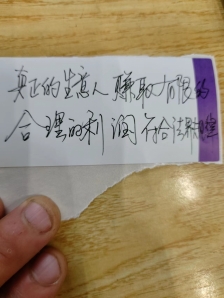 真正的生意人赚取有限的
合理的利润不合法